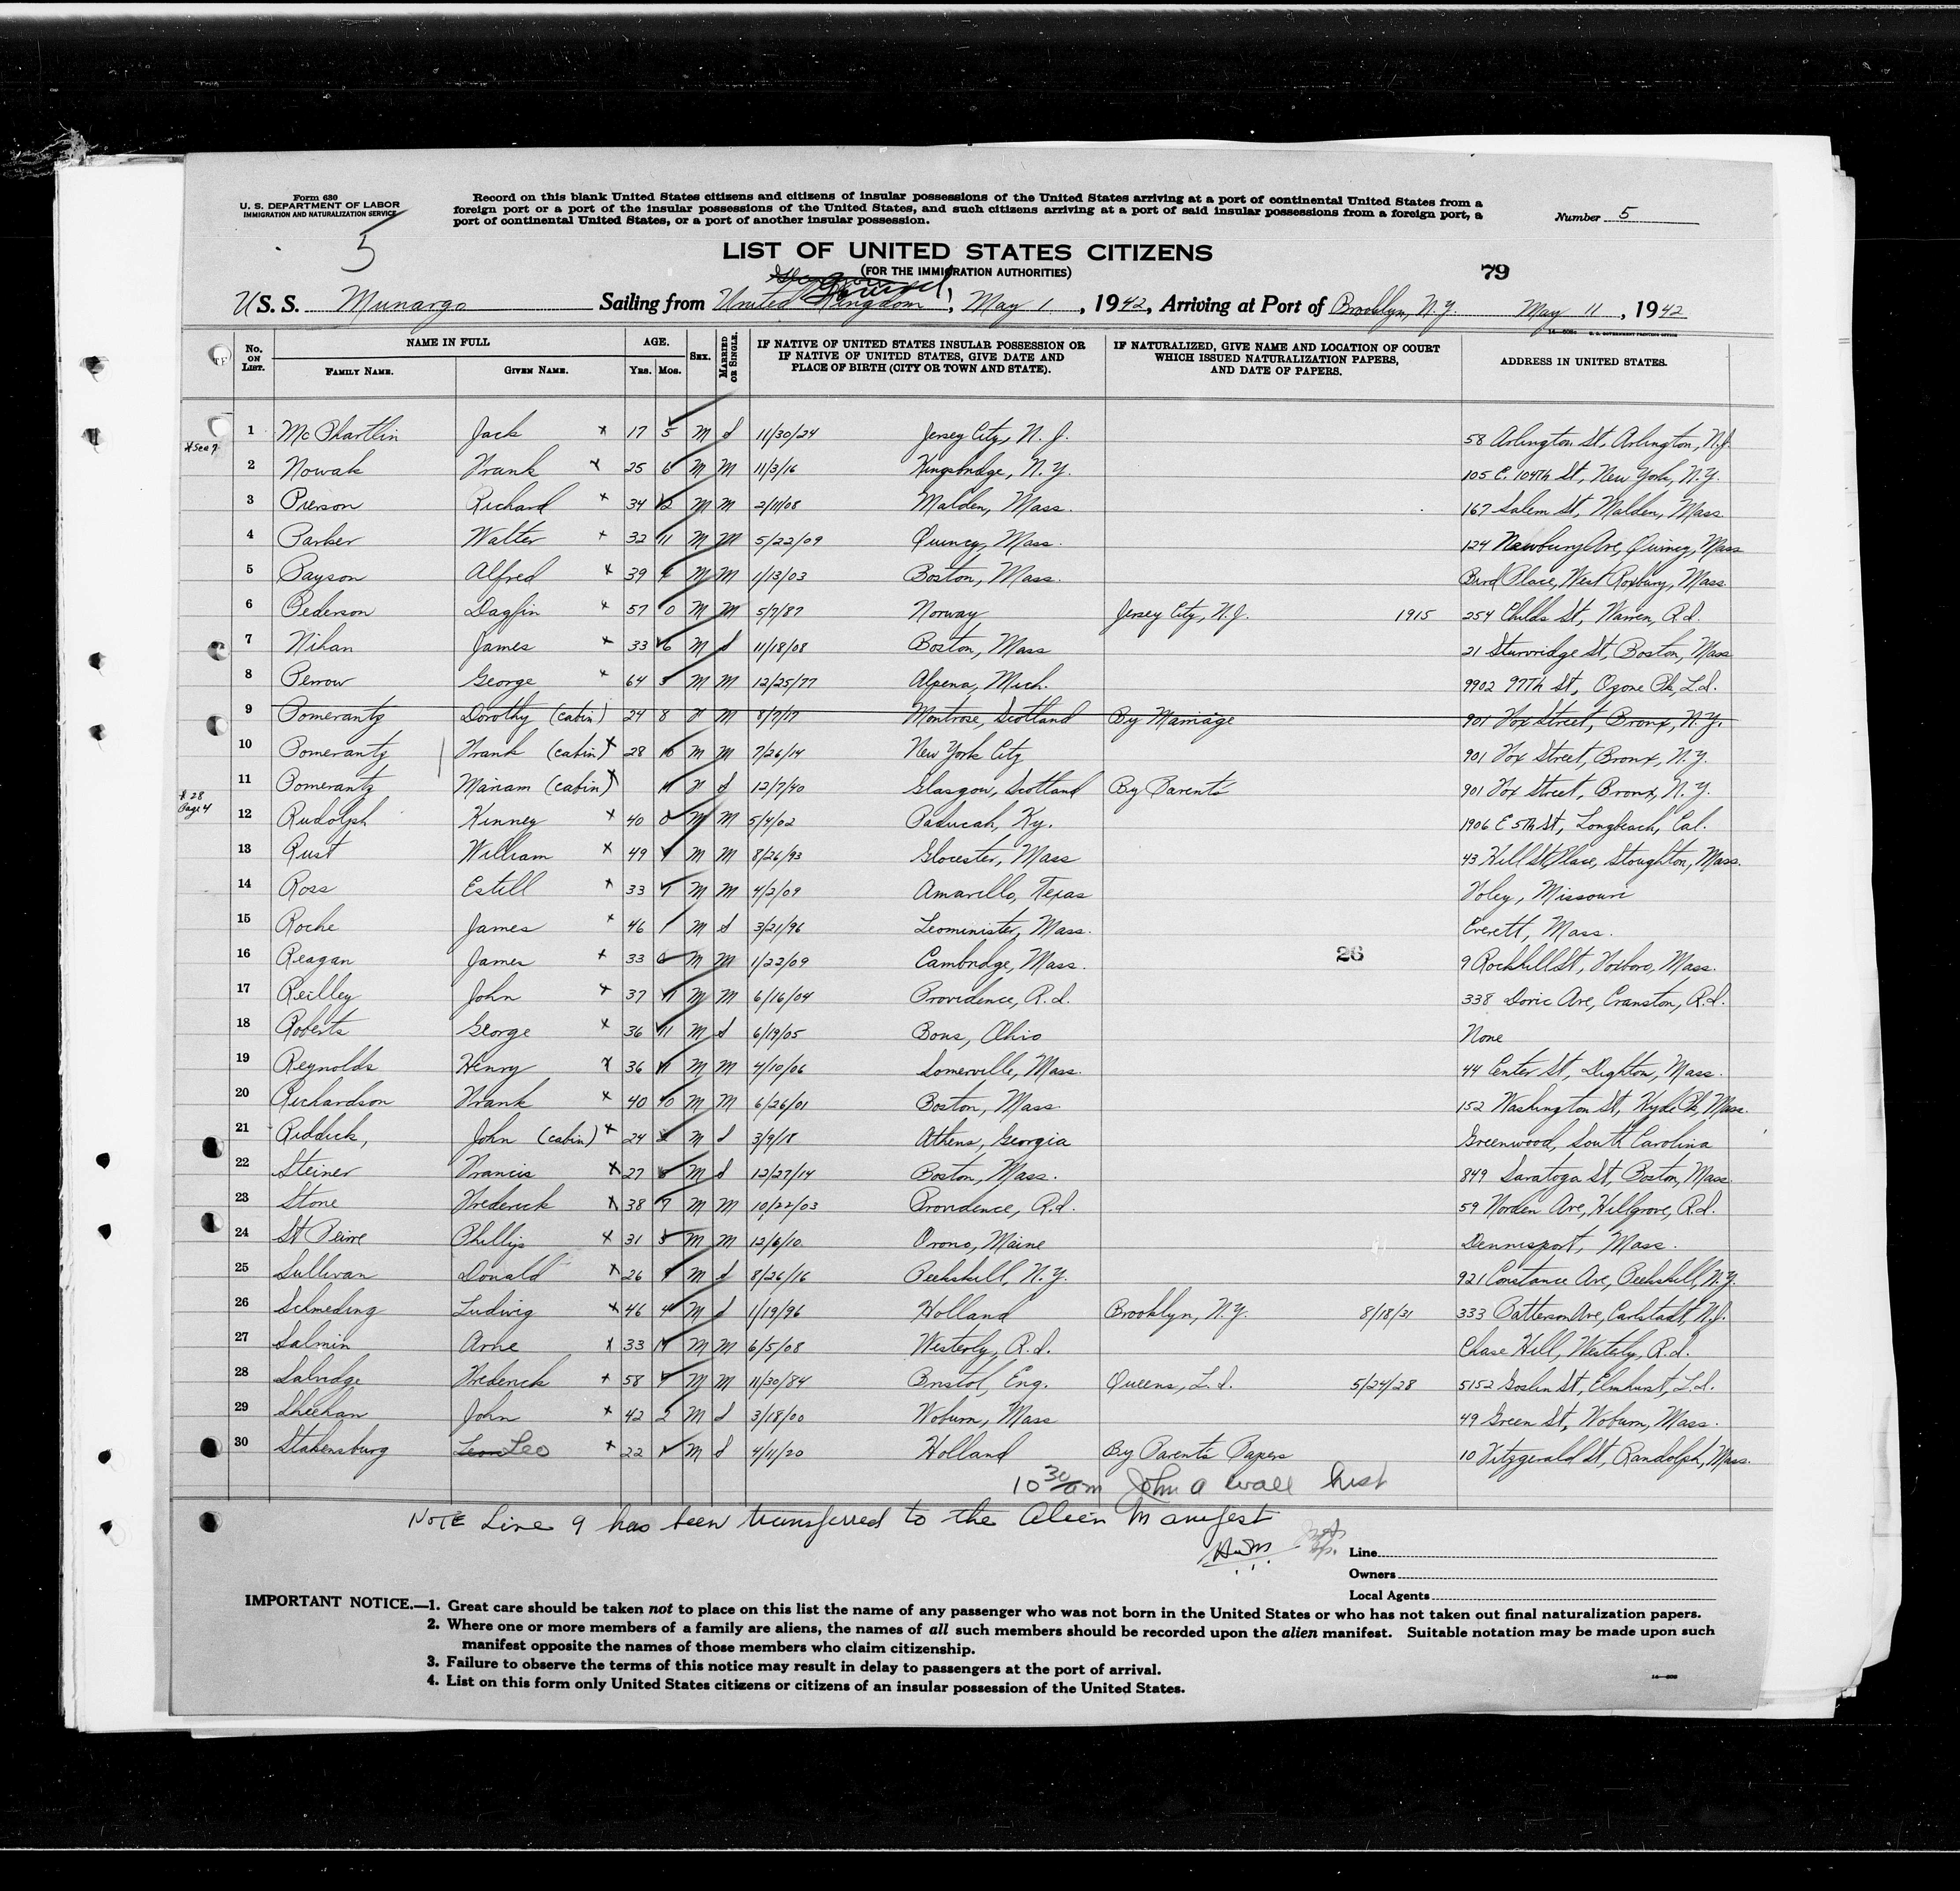 Form 630
U. S. DEPARTMENT OF LABOR
IMMIGRATION AND NATURALIZATION SERVICE
5
Record on this blank United States citizens and citizens of insular possessions of the United States arriving at a port of continental United States from a
foreign port or a port of the insular possessions of the United States, and such citizens arriving at a port of said insular possessions from a foreign port, a
port of continental United States, or a port of another insular possession.
Number 5
LIST OF UNITED STATES CITIZENS
(FOR THE IMMIGRATION AUTHORITIES)
79
U S. S. Munargo Sailing from United Kingdom, May 1, 1942, Arriving at Port of Brooklyn, N.Y. May 11, 1942
No. ON LIST. NAME IN FULL FAMILY NAME. GIVEN NAME. AGE. Yrs. Mos. SEX. MARRIED OR SINGLE. IF NATIVE OF UNITED STATES INSULAR POSSESSION OR IF NATIVE OF UNITED STATES, GIVE DATE AND PLACE OF BIRTH (CITY OR TOWN AND STATE). IF NATURALIZED, GIVE NAME AND LOCATION OF COURT WHICH ISSUED NATURALIZATION PAPERS, AND DATE OF PAPERS. ADDRESS IN UNITED STATES.
1 McPhartlin Jack x 17 5 M S 11/30/24 Jersey City, N. J. 58 Arlington St, Arlington, N.J.
2 Nowak Frank x 25 6 M M 11/3/16 Kingsbridge, N.Y. 105 E. 104th St, New York, N.Y.
3 Pierson Richard x 34 M M 2/11/08 Malden, Mass. 167 Salem St, Malden, Mass.
4 Parker Walter x 32 11 M M 5/22/09 Quincy, Mass. 124 Newbury Ave, Quincy, Mass
5 Payson Alfred x 39 M M 1/13/03 Boston, Mass. Bird Place, West Roxbury, Mass.
6 Pederson Dagfin x 57 0 M M 5/7/87 Norway Jersey City, N.J. 1915 254 Childs St, Warren, R.I.
7 Nihan James x 33 6 M S 11/18/08 Boston, Mass 21 St, Boston, Mass
8 Perrow George x 64 5 M M 12/25/77 Alpena, Mich. 9902 97th St, Ozone Pk, L.I.
9 Pomerantz Dorothy (cabin) 24 8 F M 8/7/17 Montrose, Scotland By Marriage 901 Fox Street, Bronx, N.Y.
10 Pomerantz Frank (cabin) x 28 M M 7/26/14 New York City 901 Fox Street, Bronx, N.Y.
11 Pomerantz Miriam (cabin) x F S 12/7/40 Glasgow, Scotland By Parents 901 Fox Street, Bronx, N.Y.
# 28
Page 4
12 Rudolph Kinney x 40 0 M M 5/4/02 Paducah, Ky. 1906 E 5th St, Longbeach, Cal.
13 Rust William x 49 M M 8/26/93 Glocester, Mass 43 Hill St Place, Stoughton, Mass.
14 Ross Estill x 33 M M 4/2/09 Amarillo, Texas Foley, Missouri
15 Roche James x 46 1 M S 3/21/96 Leominister, Mass. Everett, Mass.
16 Reagan James x 33 M M 1/22/09 Cambridge, Mass. 26 9 Rockhill St, Foxboro, Mass.
17 Reilley John x 37 M M 6/16/04 Providence, R.I. 338 Doric Ave, Cranston, R.I.
18 Roberts George x 36 11 M S 6/19/05 Bons, Ohio None
19 Reynolds Henry x 36 M M 4/10/06 Somerville, Mass. 44 Center St, Dighton, Mass.
20 Richardson Frank x 40 10 M M 6/26/01 Boston, Mass. 152 Washington St, Hyde Pk, Mass.
21 Riddick, John (cabin) x 24 2 M S 3/9/18 Athens, Georgia Greenwood, South Carolina
22 Steiner Francis x 27 M S 12/27/14 Boston, Mass. 849 Saratoga St, Boston, Mass.
23 Stone Frederick x 38 7 M M 10/22/03 Providence, R.I. 59 Norden Ave, Hillgrove, R.I.
24 St Peirre Phillip x 31 5 M M 12/6/10 Orono, Maine Dennisport, Mass.
25 Sullivan Donald x 26 M S 8/26/16 Peekskill, N.Y. 921 Constance Ave, Peekskill, N.Y.
26 Schmeding Ludwig x 46 4 M S 1/19/96 Holland Brooklyn, N.Y. 8/18/31 333 Patterson Ave, Carlstadt, N.J.
27 Salmin Arne x 33 M M 6/5/08 Westerly, R.I. Chase Hill, Westerly, R.I.
28 Salvidge Frederick x 58 M M 11/30/84 Bristol, Eng. Queens, L.I. 5/24/28 5152 Goslin St, Elmhurst, L.I.
29 Sheehan John x 42 2 M S 3/18/00 Woburn, Mass 49 Green St, Woburn, Mass.
30 Stabensburg Leon Leo x 22 1 M S 4/11/20 Holland By Parents Papers 10 Fitzgerald St, Randolph, Mass.
10 30 am John A Wall Insp
NOTE Line 9 has been transferred to the Alien Manifest
Line
Owners
Local Agents
IMPORTANT NOTICE.—1. Great care should be taken not to place on this list the name of any passenger who was not born in the United States or who has not taken out final naturalization papers.
2. Where one or more members of a family are aliens, the names of all such members should be recorded upon the alien manifest. Suitable notation may be made upon such
manifest opposite the names of those members who claim citizenship.
3. Failure to observe the terms of this notice may result in delay to passengers at the port of arrival.
4. List on this form only United States citizens or citizens of an insular possession of the United States.